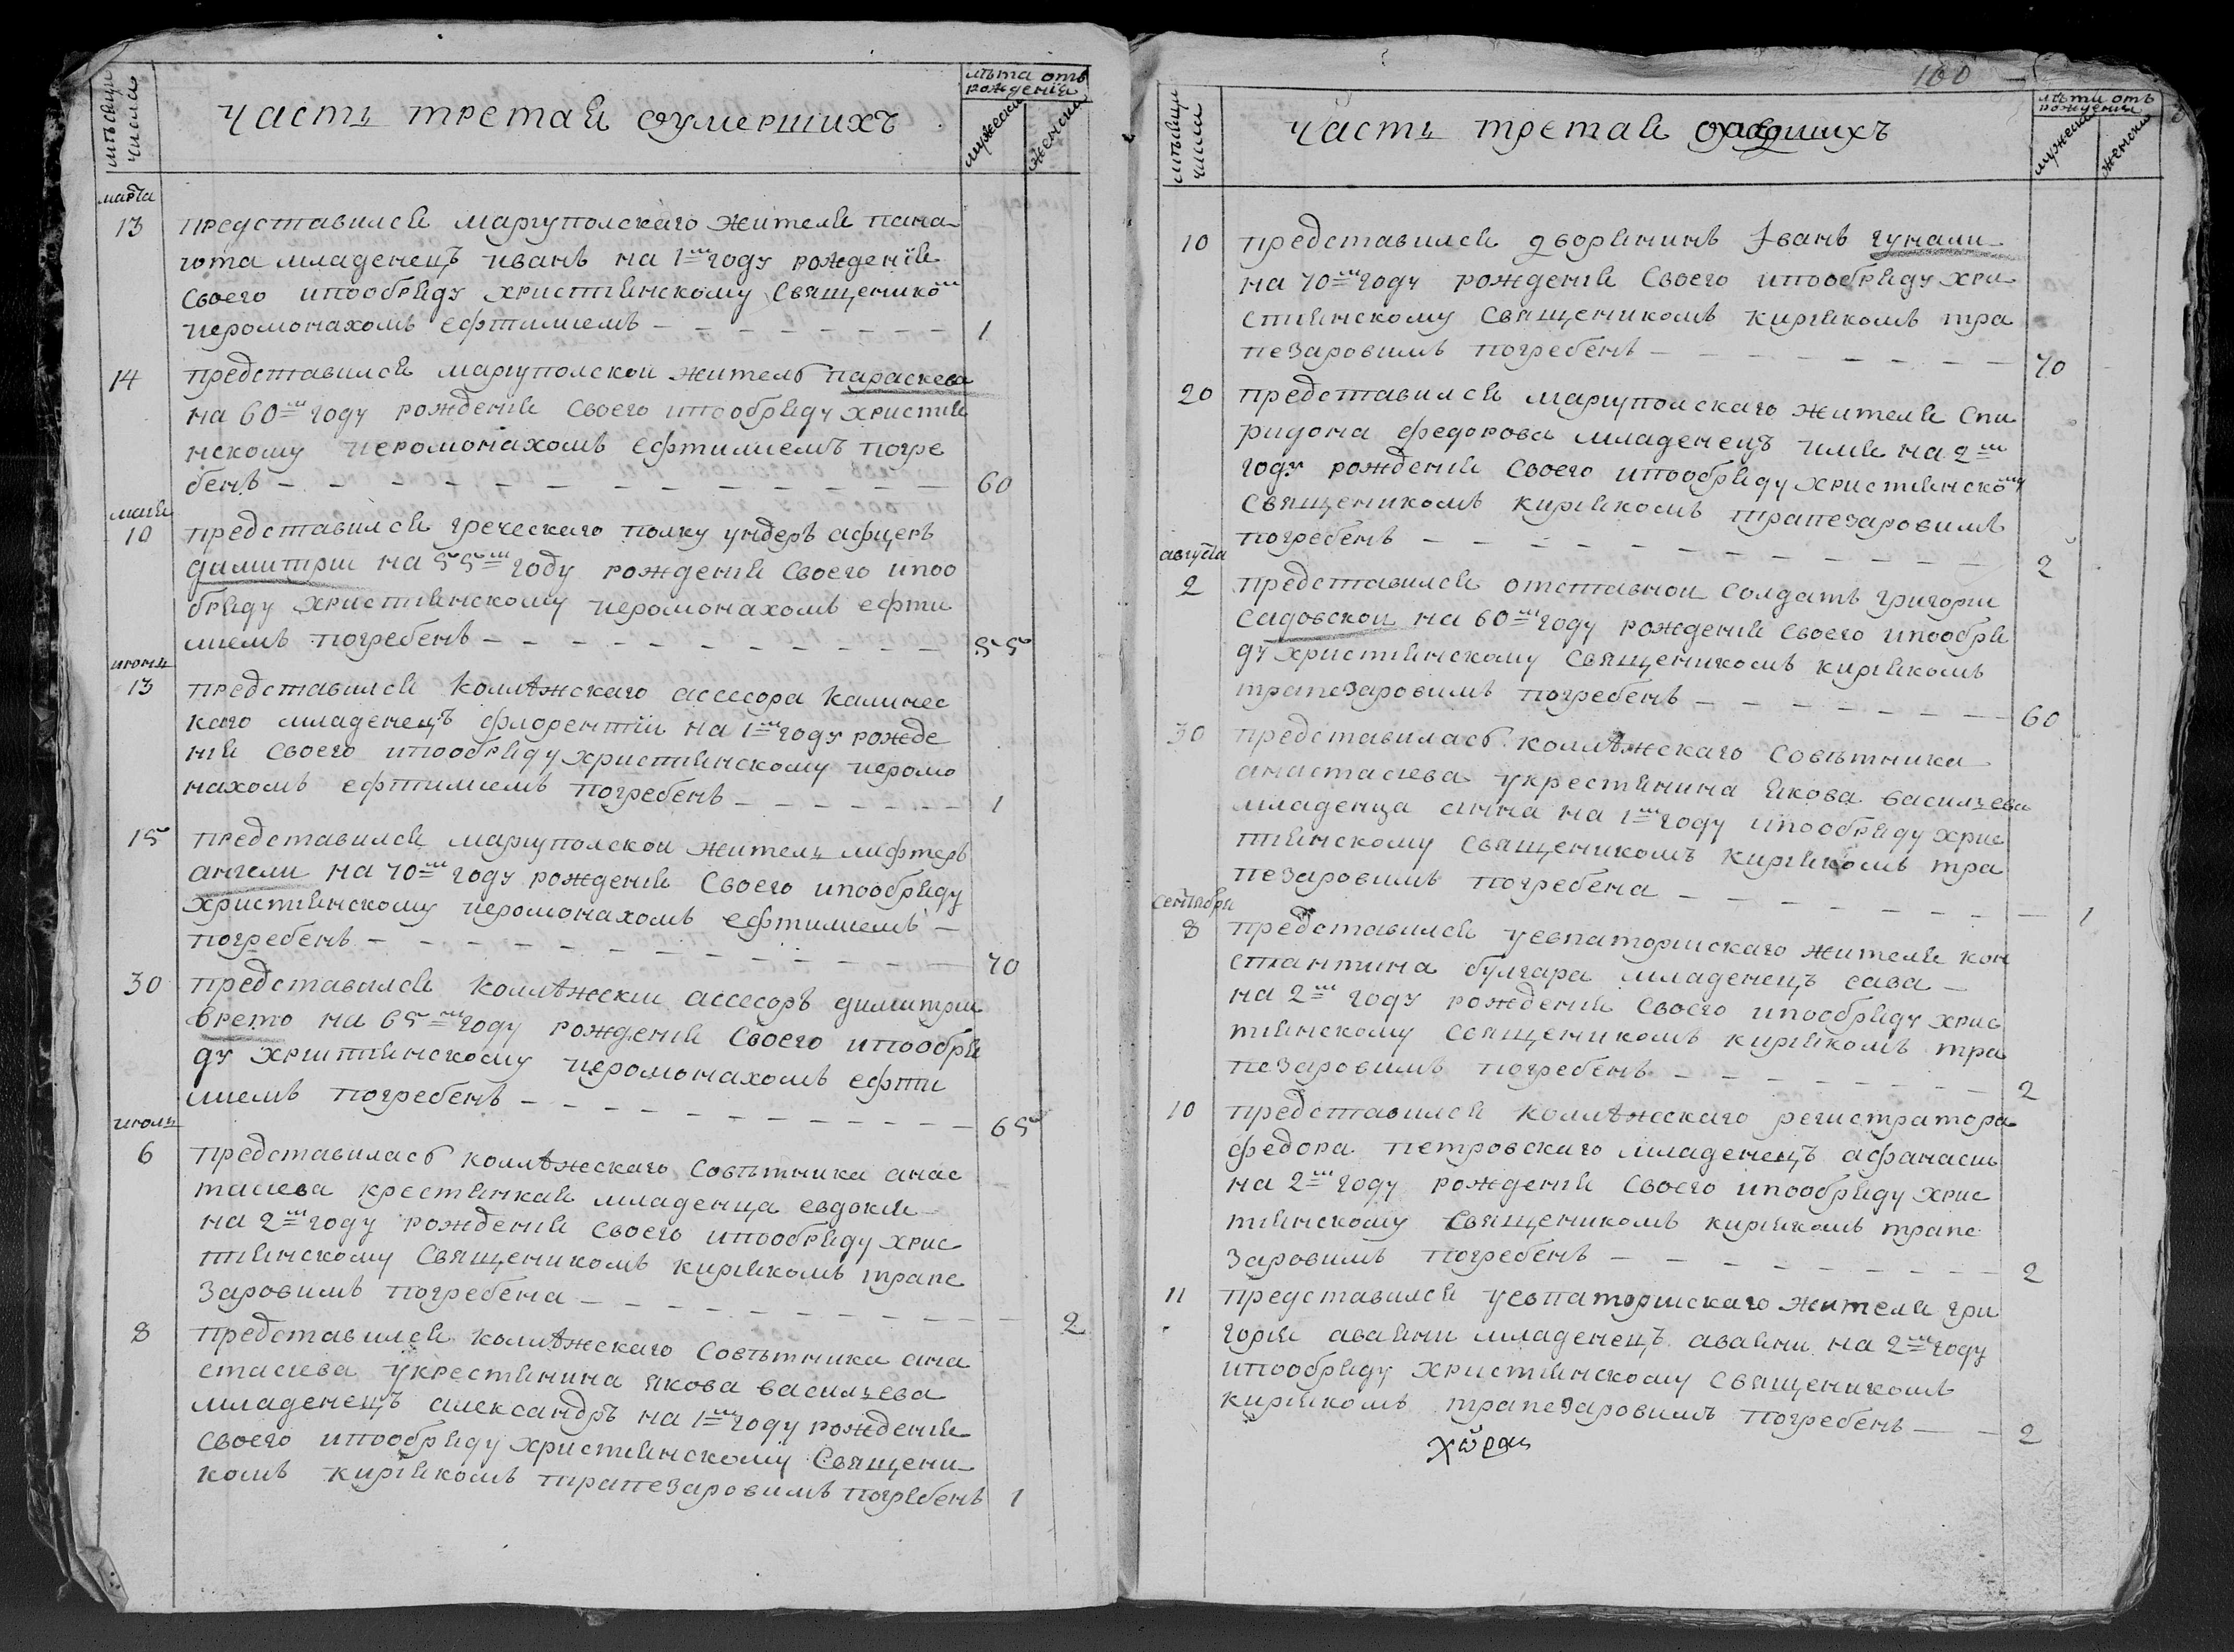 мѣсяцы
числа
часть третая оумершихъ
лѣта отъ
рождения
мужески
женски
марта
13 представился мариуполскаго жителя пана
иота младенецъ иванъ на 1м году рождения
своего ипообряду християнскому священико
иеромонахомъ ефтимиемъ 1
14 представился мариуполской житель параскева
на 60м году рождения своего ипообряду христия
нскому иеромонахомъ ефтимиемъ погре
бенъ 60
маия
10 представился греческаго полку ундеръ афцеръ
димитри на 55м году рождения своего ипоо
бряду християнскому иеромонахомъ ефти
миемъ погребенъ 55
июнь
13 представился коллѣжскаго ассесора калинес
каго младенецъ флорентїи на 1м году рожде
ния своего ипообряду християнскому иеромо
нахомъ ефтимиемъ погребенъ 1
15 представился мариуполской житель лефтеръ
ангели на 70м году рождения своего ипообряду
християнскому иеромонахомъ ефтимиемъ
погребенъ 70
30 представился коллѣжски ассесоръ димитри
врето на 65м году рождения своего ипообря
ду християнскому иеромонахомъ ефти
миемъ погребенъ 65
июль
6 представиласъ коллѣжскаго совѣтника анас
тасиева крестянкая младенца евдокия
на 2м году рождения своего ипообряду хрис
тиянскому священикомъ кирияком трапе
заровимъ погребена 2
8 представился коллѣжскаго совѣтника ана
стасиева укрестянина якова василъева
младенецъ александръ на 1м году рождения
своего ипообряду християнскому священи
комъ кириякомъ трапезаровимъ погребенъ 1
100
мѣсяцы
числа
часть третая
лѣта отъ
рождения
мужески
женски
10 представился дворянинъ Іванъ гунали
на 70м году рождения своего ипообряду хри
стиянскому священикомъ кириякомъ тра
пезаровимъ погребенъ 70
20 представился мариуполскаго жителя спи
ридона федорова младенецъ илия на 2м
году рождения своего ипообряду християнскому
священикомъ кириякомъ трапезаровимъ
погребенъ 2
августа
2 представился отставной солдатъ григори
садовской на 60м году рождения своего ипообря
ду християнскому священикомъ кириякомъ
трапезаровимъ погребенъ 60
30 представиласъ коллѣжскаго совѣтника
анастасиева укрестянина якова василъева
младенца анна на 1м году ипообряду хрис
тиянскому священикомъ кириякомъ тра
пезаровимъ погребена 1
сентября
8 представился уевпаторискаго жителя кон
стантина булгара младенецъ сава
на 2м году рождения своего ипообряду хрис
тиянскому священикомъ кириякомъ тра
пезаровимъ погребенъ 2
10 представился коллѣжескаго регистратора
федора петровскаго младенецъ афанаси
на 2м году рождения своего ипообряду хрис
тиянскому священикомъ кириякомъ трапе
заровимъ погребенъ 2
11 представился уевпаторискаго жителя гри
гория аваини младенецъ аваини на 2м году
ипообряду християнскому священикомъ
кириякомъ трапезаровимъ погребенъ 2